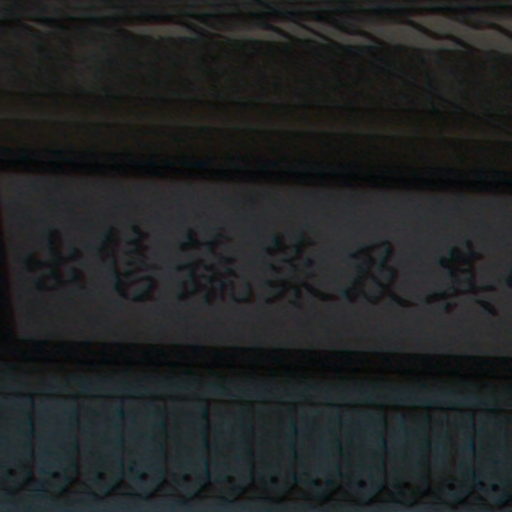 出售蔬菜及其